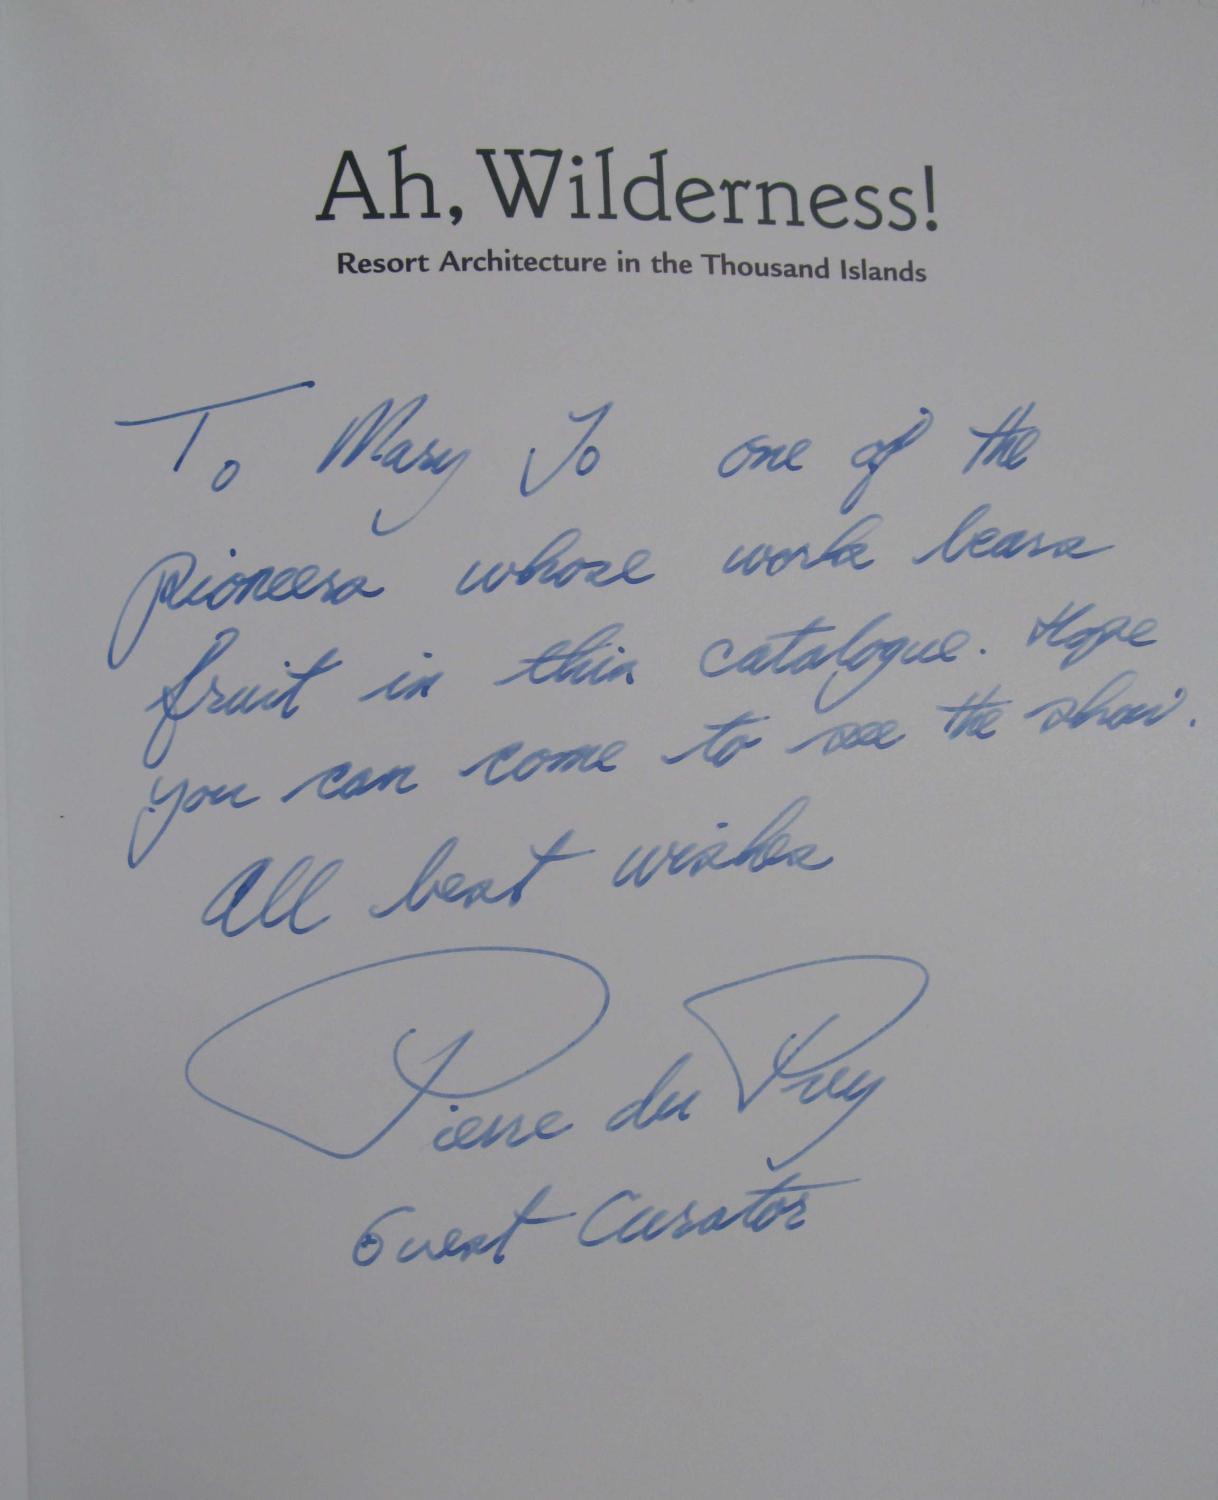 Ah, Wilderness!
Resort Architecture in the Thousand Islands
To Mary Jo one of the
pioneers whose work bears
fruit in this catalogue. Hope
you can come to see the show.
All best wishes
Pierre du Prey
Guest Curator